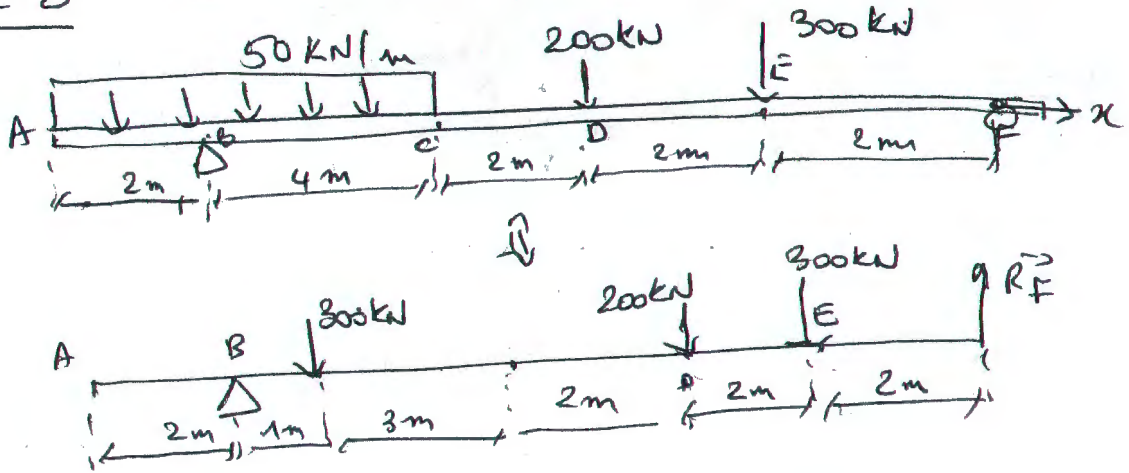 50 KN/m 200kN 300kN
E
A B C D F x
2m 4m 2m 2m 2m
300kN 200kN 300kN R_F
A B D E
2m 1m 3m 2m 2m 2m